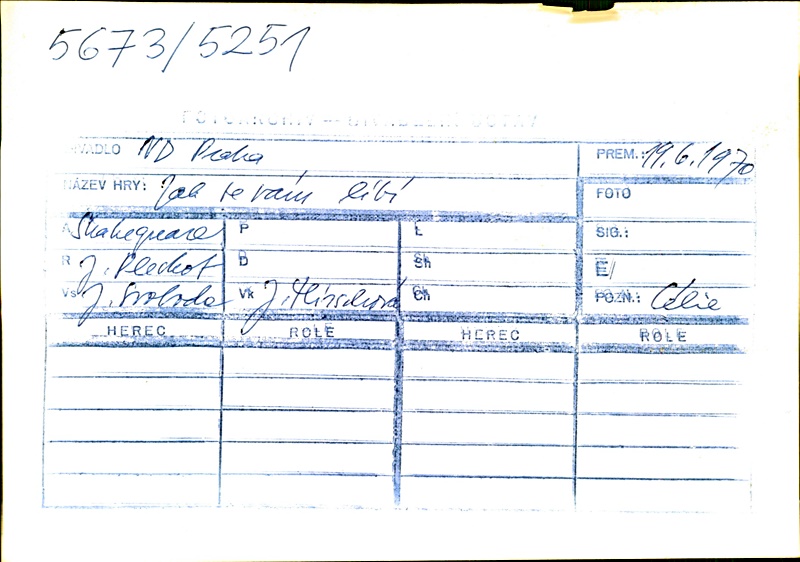 5673/5251
FOTOARCHIV – DIVADELNÍ ÚSTAV
DIVADLO ND Praha PREM.: 19.6.1970
NÁZEV HRY: Jak se vám líbí FOTO
A Shakespeare P L SIG.:
R J. Pleskot D Sh E/
Vs J. Svoboda Vk Ch POZN.: Célie
HEREC ROLE HEREC ROLE